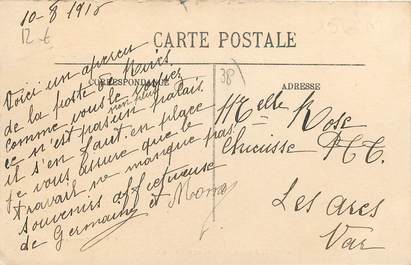 10-8 1916
12 €
CARTE POSTALE
CORRESPONDANCE
ADRESSE
38
Voici un aperçu
de la poste de
comme vous le voyez
ce n'est pas un palais
il s'en faut, en place
non plus
je vous assure que le
travail ne manque pas.
Souvenirs affectueux
de Germaine et
Melle Rose
P.T.T.
Les Arcs
Var